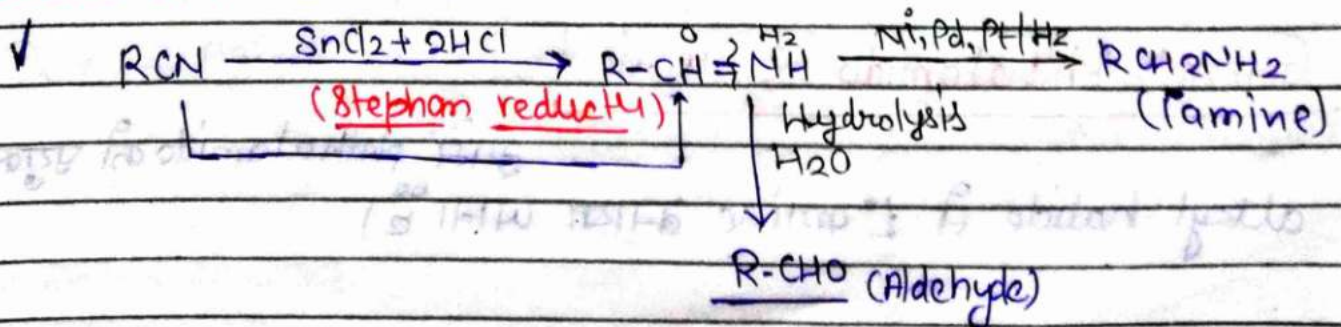 ✓ RCN SnCl2 + 2HCl → R-CH=NH Ni, Pd, Pt/H2 → RCH2NH2
O H2
(Stephan reductn) Hydrolysis (1°amine)
H2O
R-CHO (Aldehyde)